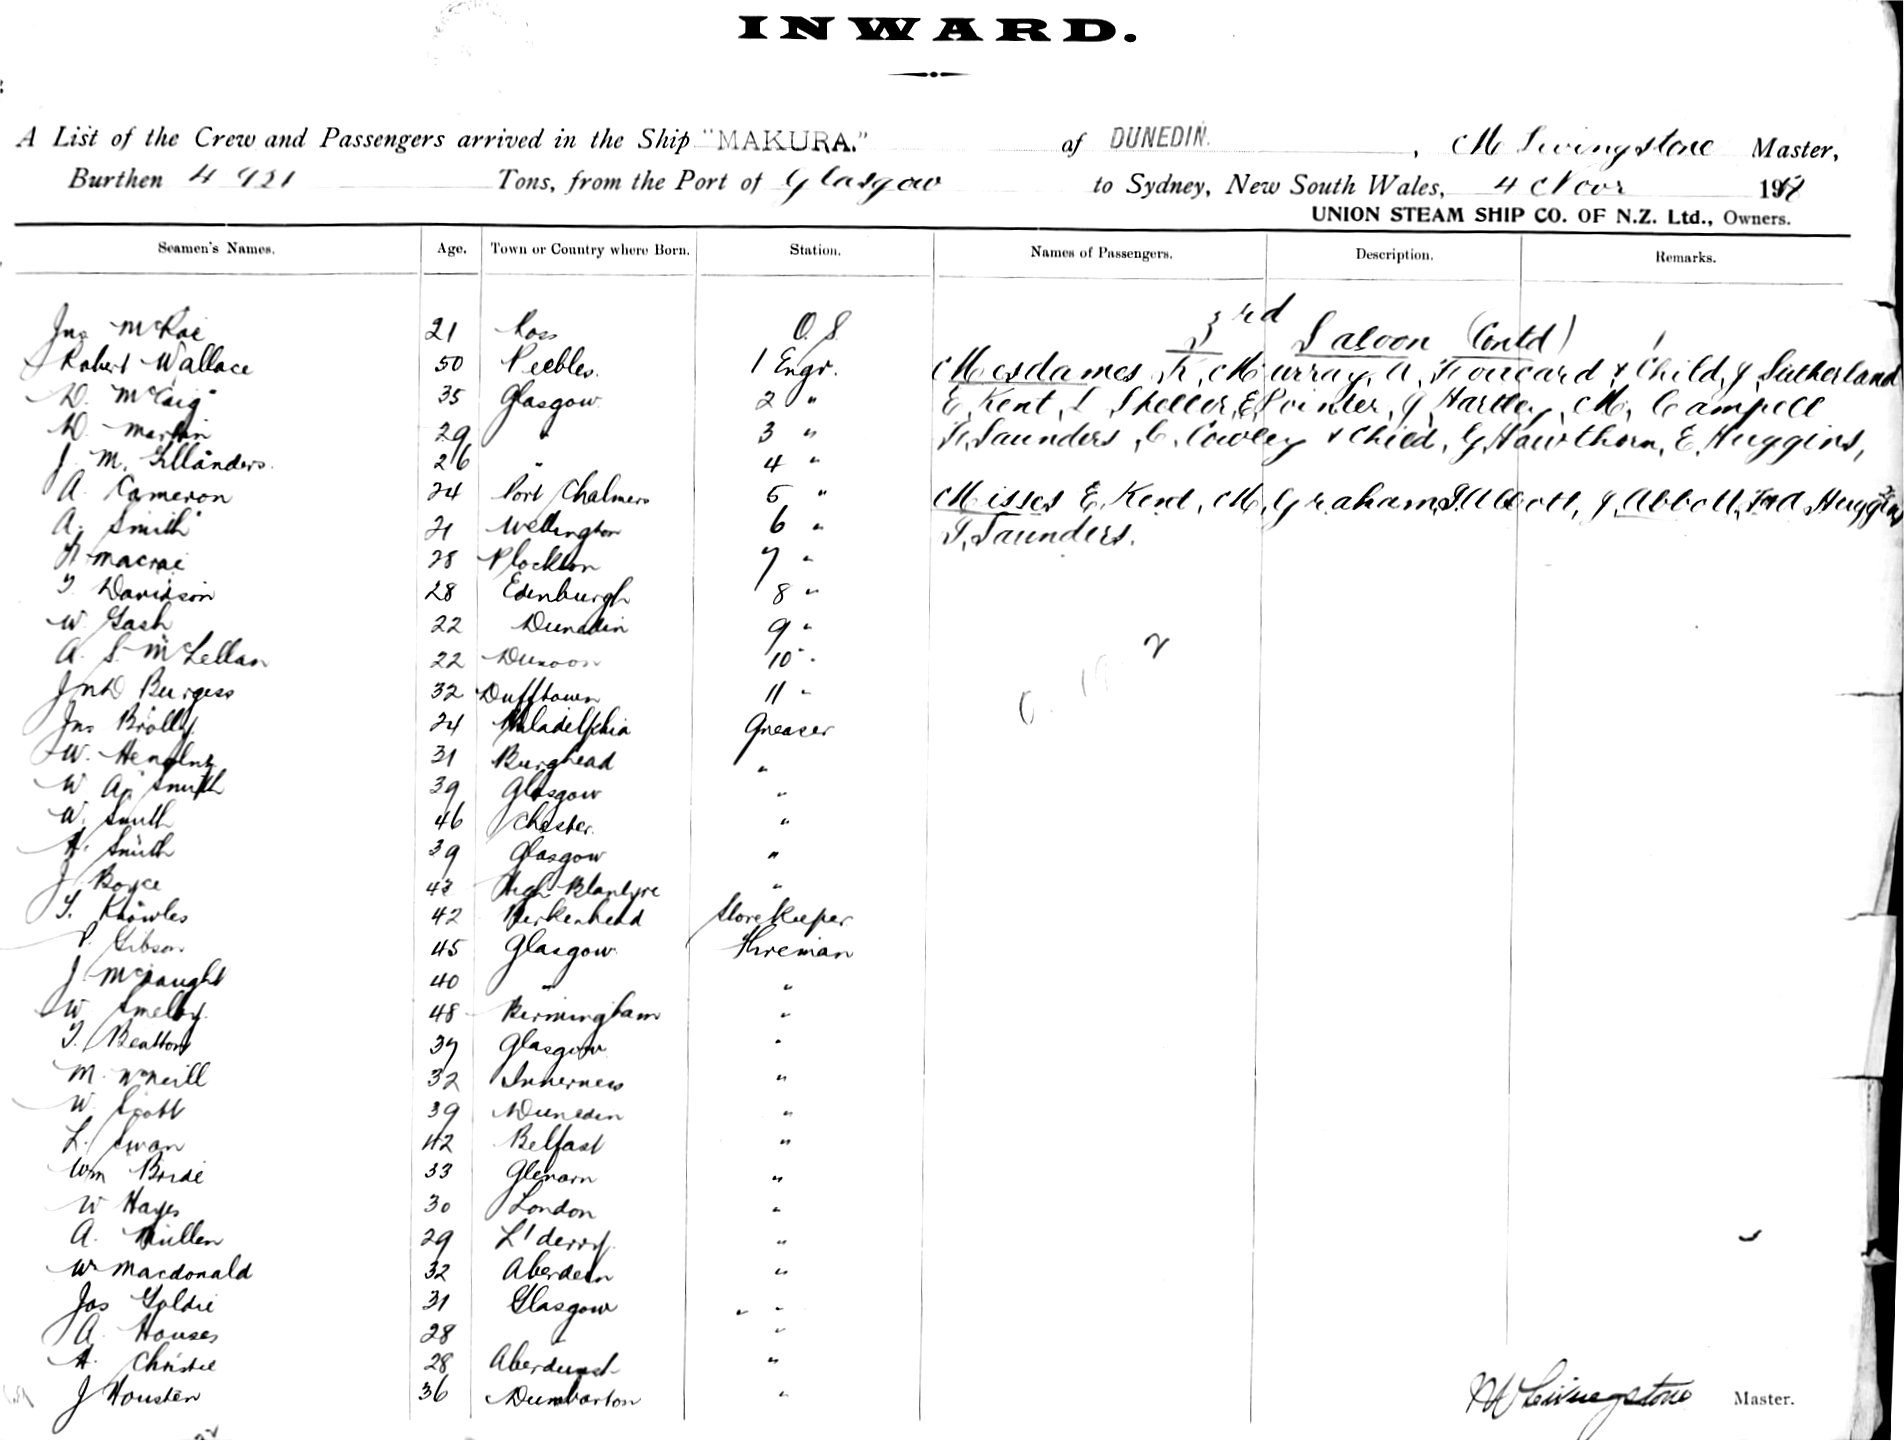 INWARD.
A List of the Crew and Passengers arrived in the Ship "MAKURA." of DUNEDIN. , M Livingstone Master,
Burthen 4921 Tons, from the Port of Glasgow to Sydney, New South Wales, 4 Novr 19
UNION STEAM SHIP CO. OF N.Z. Ltd., Owners.
Seamen's Names. Age. Town or Country where Born. Station. Names of Passengers. Description. Remarks.
3rd Saloon (Contd)
Jno McRae 21 Ross O.S.
Robert Wallace 50 Peebles. 1 Engr. Mesdames Murray, & Child, J. Sutherland
D. McCaig 35 Glasgow 2 " E. Kent, L Sheller, E Pointer, J Hartley, M. Campell
D. Martin 29 " 3 " Saunders, C. Cowley & Child, G. Hawthorn, E. Huggins,
J. M. Gillanders. 26 " 4 "
A. Cameron 24 Port Chalmers 5 " Misses E. Kent, M. Graham, Abbott, J. Abbott, Huggins
A. Smith 21 Wellington 6 " Saunders.
Macrae 28 Plockton 7 "
T. Davidson 28 Edinburgh 8 "
W. Gash 22 Dunedin 9 "
A. S. McLellan 22 Dunoon 10 "
Jno Burgess 32 Dufftown 11 "
Jno Brolly 24 Philadelphia Greaser
W. 31 Burghead "
W. A. Smith 39 Glasgow "
W. Smith 46 Chester. "
H. Smith 39 Glasgow "
J. Boyce 43 High Blantyre "
T. Knowles 42 Birkenhead Storekeeper
P. Gibson 45 Glasgow Fireman
J. McNaught 40 " "
W Smelby 48 Birmingham "
T. Beatton 37 Glasgow "
M. McNeill 32 Inverness "
W. Scott 39 Dunedin "
L. Swan 42 Belfast "
Wm Bride 33 Glenarn "
W Hayes 30 London "
A. Mullen 29 L'derry "
Wm Macdonald 32 Aberdeen "
Jas Goldie 31 Glasgow " "
A. Houses 28 "
A. Christie 28 "
J Houston 36 Dumbarton "
M Livingstone Master.